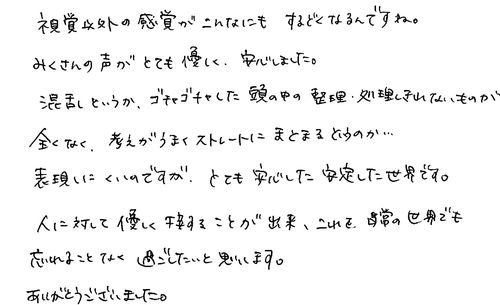 視覚以外の感覚がこんなにも するどくなるんですね。
みくさんの声が とても優しく、安心しました。
混乱しというか、ゴチャゴチャした 頭の中の 整理・処理しきれないものが
全くなく、考えがうまくストレートに まとまるというのか…
表現しにくいのですが、とても 安心した 安定した世界です。
人に対して 優しく 接することが 出来、これを 日常の世界でも
忘れることなく 過ごしたいと思います。
ありがとうございました。